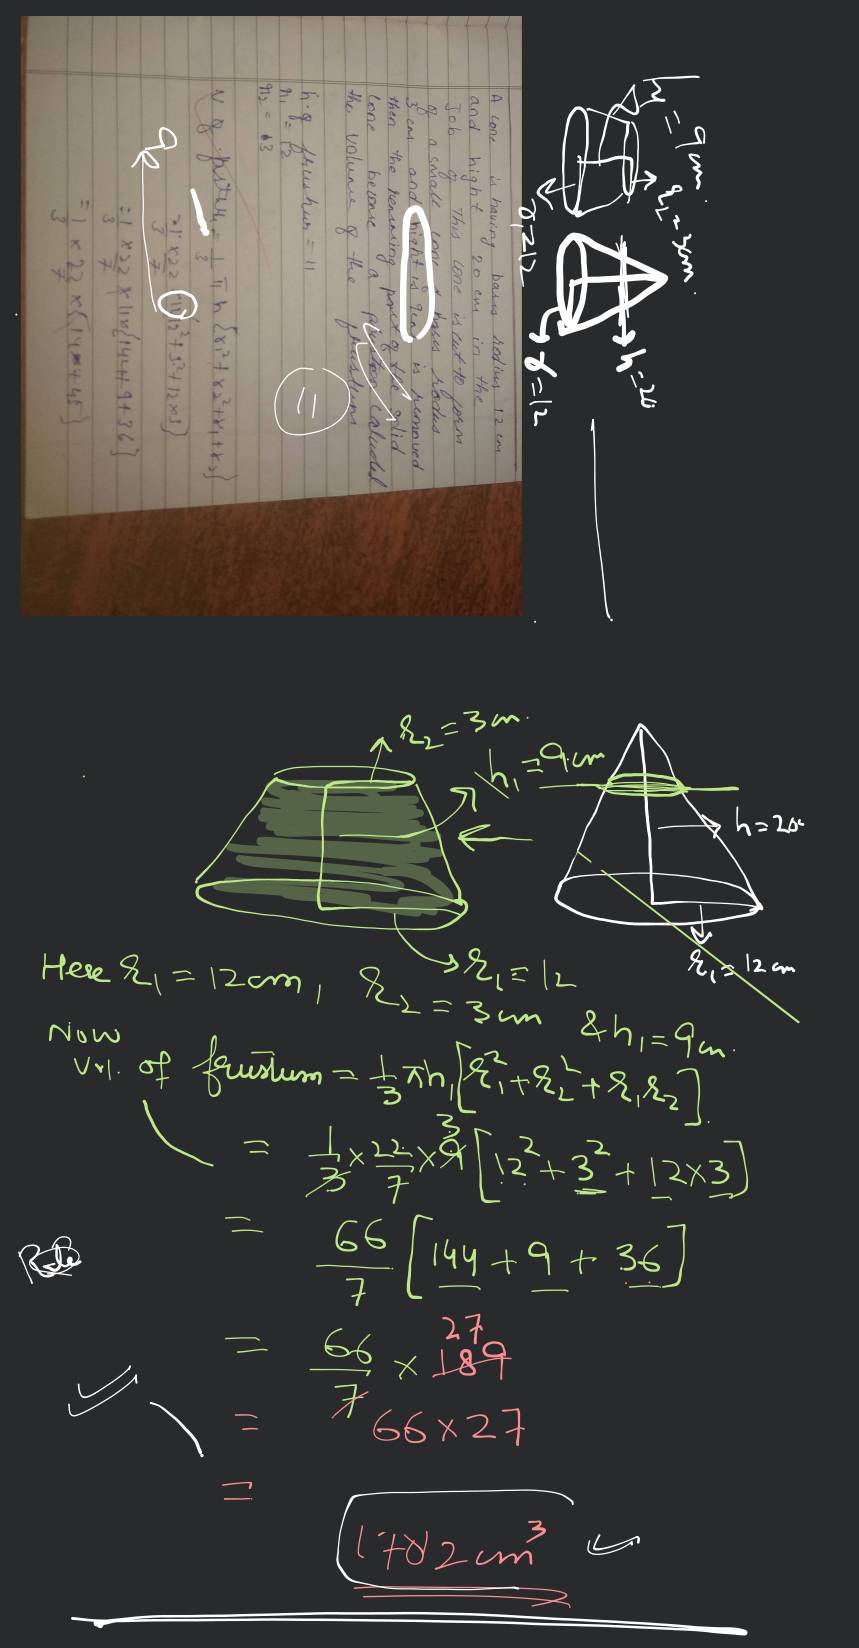 A cone is having basus radius 12 cm
and hight 20 cm in the
Job of this cone is cut to form
of a small cone of basus radus
3 cm and hight is 9cm is removed
then the remaning part of the solid
cone become a caluded
the volume of the frustum
h.of frustum = 11
r1 = 12
r2 = 3
11
9
= 1/3 π h {r1² + r2² + r1 + r2}
= 1/3 × 22/7 × 11 {12² + 3² + 12×3}
= 1/3 × 22/7 × 11 × {144 + 9 + 36}
= 1/3 × 22/7 × {144 + 45}
h = 9cm.
r2 = 3cm.
r1 = 12
h = 20
r = 12
r2 = 3cm.
h1 = 9cm
h = 20c
r1 = 12
r1 = 12cm
Here r1 = 12cm, r2 = 3cm & h1 = 9cm.
Now
Vol. of frustum = 1/3 πh1 [r1² + r2² + r1r2]
= 1/3 × 22/7 × 9 3 [12² + 3² + 12×3]
= 66/7 [144 + 9 + 36]
= 66/7 × 189 27
= 66 × 27
= 1782cm³